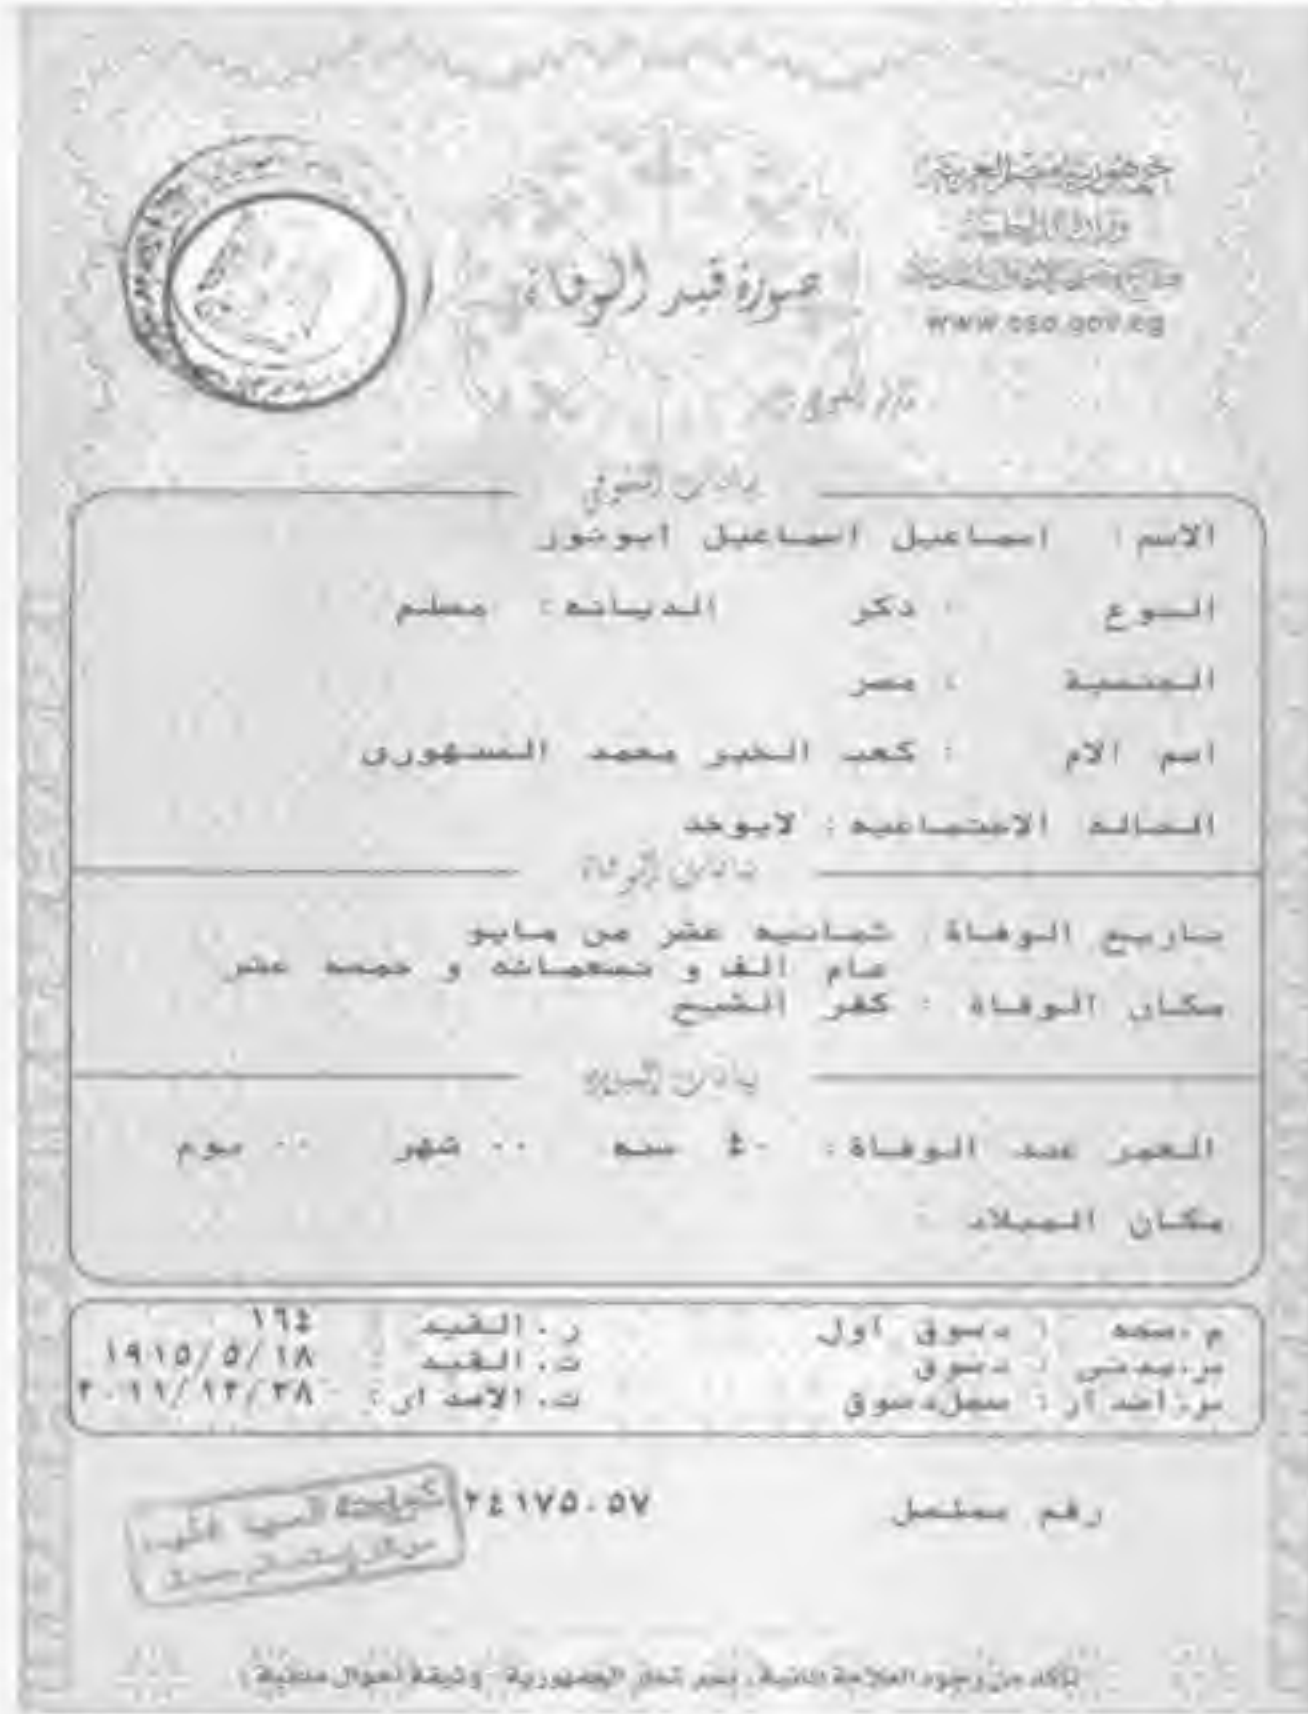 جمهورية مصر العربية
وزارة الداخلية
www.cso.gov.eg
صورة قيد الوفاة
بيانات المتوفى
الاسم : اسماعيل اسماعيل ابونور
النوع : ذكر الديانه : مسلم
الجنسية : مصر
اسم الام : كعب الخير محمد السنهورى
الحاله الاجتماعيه : لايوجد
بيانات الوفاة
تاريخ الوفاة : ثمانيه عشر من مايو
عام الف و تسعمائه و خمسه عشر
مكان الوفاة : كفر الشيخ
بيانات الميلاد
العمر عند الوفاة : ٤٠ سنه ٠٠ شهر ٠٠ يوم
مكان الميلاد :
م.صحه : دسوق اول ر.القيد : ١٦٤
س.مدنى : دسوق ت.القيد : ١٩١٥/٥/١٨
س.اصدار : سجل دسوق ت.الاصدار : ٢٠١١/١٢/٢٨
رقم مسلسل ٢٤١٧٥٠٥٧
تأكد من وجود العلامة المائية ، نسر شعار الجمهورية - وثيقة أحوال مدنية